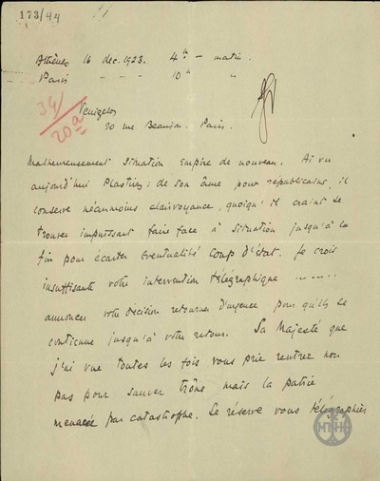 173/44
Athènes 16 dec. 1923. 4h - matin.
Paris - - - 10h "
34/20a
Venizelos
20 rue Beaujon. Paris.
Malheureusement situation empire de nouveau. Ai vu
aujourd'hui Plastiras; de son âme pour republicains, il
conserve néanmoins clairvoyance, quoiqu'il craint se
trouver impuissant faire face à situation jusqu'à la
fin pour écarter éventualité Coup d'état. Je crois
insuffisante votre intervention télégraphique .......
annoncer votre décision retourner d'urgence pour qu'ils se
contienne jusqu'à votre retour. Sa Majesté que
j'ai vue toutes les fois vous prie rentrer non
pas pour sauver trône mais la patrie
menacée par catastrophe. Se réserve vous télégraphier